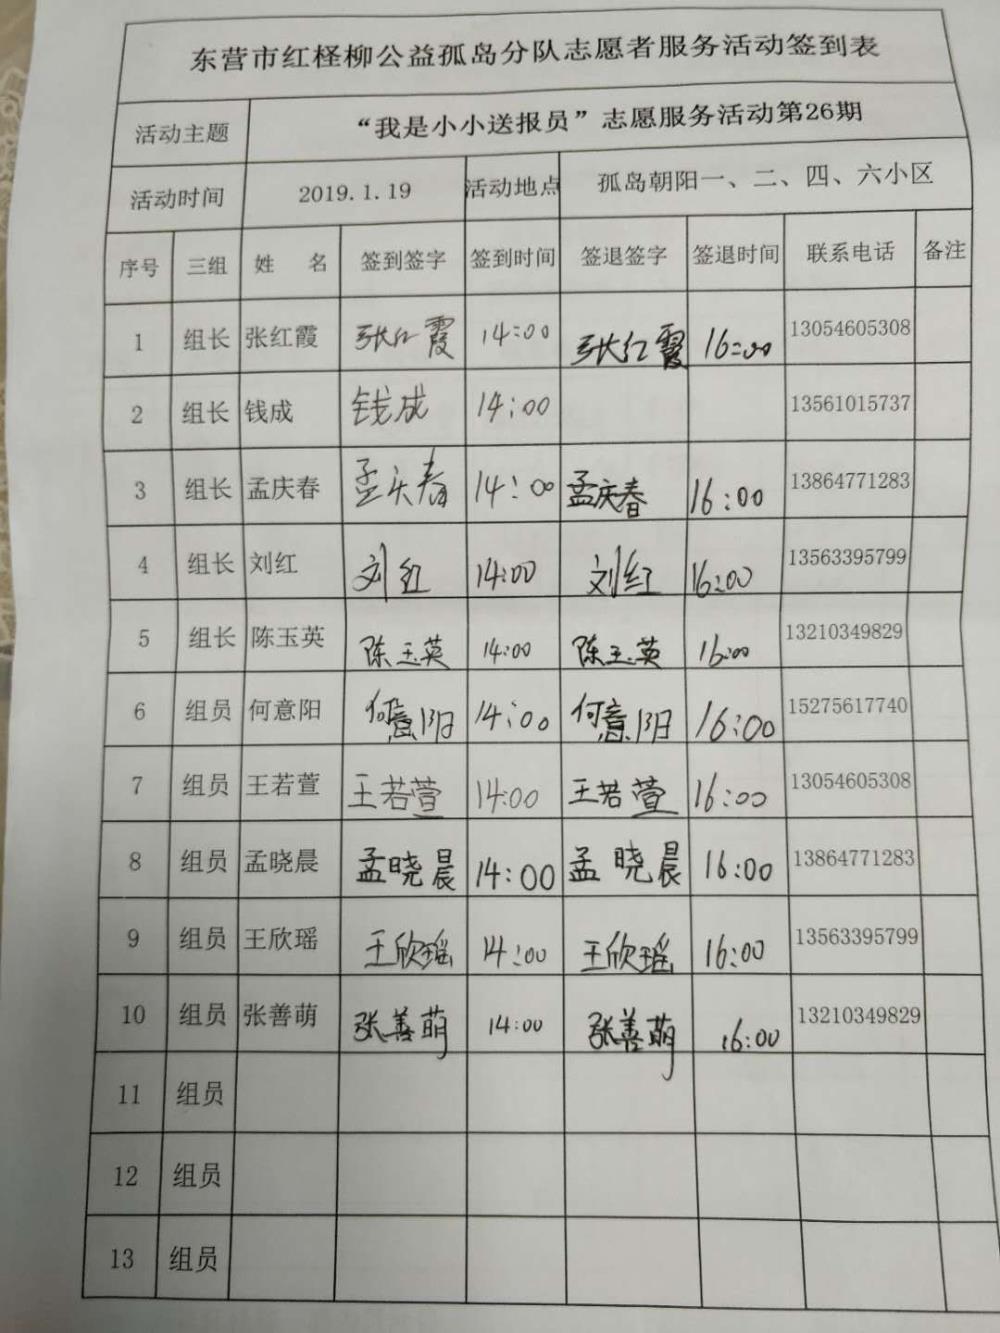 东营市红柽柳公益孤岛分队志愿者服务活动签到表
活动主题 “我是小小送报员”志愿服务活动第26期
活动时间 2019.1.19 活动地点 孤岛朝阳一、二、四、六小区
序号 三组 姓 名 签到签字 签到时间 签退签字 签退时间 联系电话 备注
1 组长 张红霞 张红霞 14:00 张红霞 16:00 13054605308
2 组长 钱成 钱成 14:00 13561015737
3 组长 孟庆春 孟庆春 14:00 孟庆春 16:00 13864771283
4 组长 刘红 刘红 14:00 刘红 16:00 13563395799
5 组长 陈玉英 陈玉英 14:00 陈玉英 16:00 13210349829
6 组员 何意阳 何意阳 14:00 何意阳 16:00 15275617740
7 组员 王若萱 王若萱 14:00 王若萱 16:00 13054605308
8 组员 孟晓晨 孟晓晨 14:00 孟晓晨 16:00 13864771283
9 组员 王欣瑶 王欣瑶 14:00 王欣瑶 16:00 13563395799
10 组员 张善萌 张善萌 14:00 张善萌 16:00 13210349829
11 组员
12 组员
13 组员